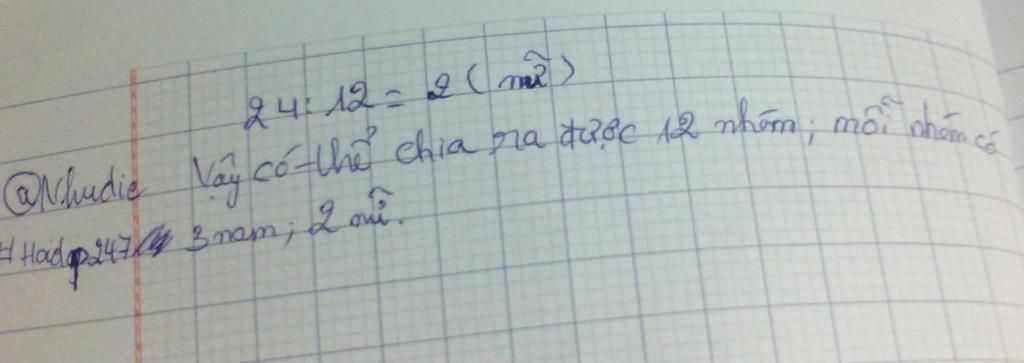 24:12 = 2 (nữ)
@Nhudie Vậy có thể chia ra được 12 nhóm; mỗi nhóm có
3 nam; 2 nữ.